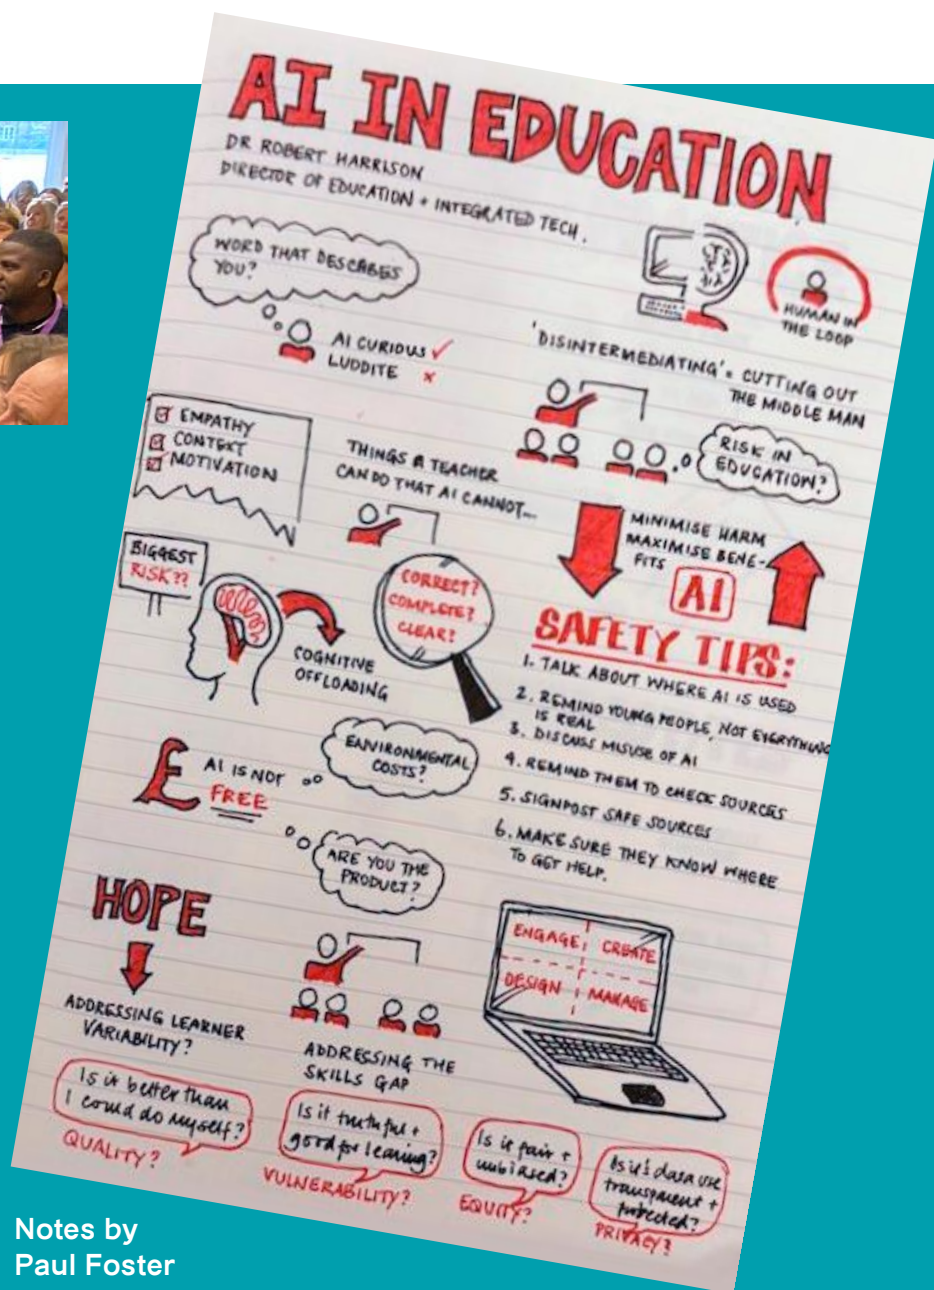 AI IN EDUCATION
DR ROBERT HARRISON
DIRECTOR OF EDUCATION + INTEGRATED TECH.
WORD THAT DESCRIBES
YOU?
AI CURIOUS ✓
LUDDITE ×
HUMAN IN
THE LOOP
'DISINTERMEDIATING' = CUTTING OUT
THE MIDDLE MAN
RISK IN
EDUCATION?
EMPATHY
CONTEXT
MOTIVATION
THINGS A TEACHER
CAN DO THAT AI CANNOT...
MINIMISE HARM
MAXIMISE BENE-
FITS
AI
BIGGEST
RISK??
COGNITIVE
OFFLOADING
CORRECT?
COMPLETE?
CLEAR?
SAFETY TIPS:
1. TALK ABOUT WHERE AI IS USED
2. REMIND YOUNG PEOPLE, NOT EVERYTHING
IS REAL
3. DISCUSS MISUSE OF AI
4. REMIND THEM TO CHECK SOURCES
5. SIGNPOST SAFE SOURCES
6. MAKE SURE THEY KNOW WHERE
TO GET HELP.
£ AI IS NOT
FREE
ENVIRONMENTAL
COSTS?
ARE YOU THE
PRODUCT?
HOPE
ADDRESSING LEARNER
VARIABILITY?
ADDRESSING THE
SKILLS GAP
ENGAGE CREATE
DESIGN MANAGE
Is it better than
I could do myself?
QUALITY?
Is it truthful +
good for learning?
VULNERABILITY?
Is it fair +
unbiased?
EQUITY?
Is it's data use
transparent +
protected?
PRIVACY?
Notes by
Paul Foster